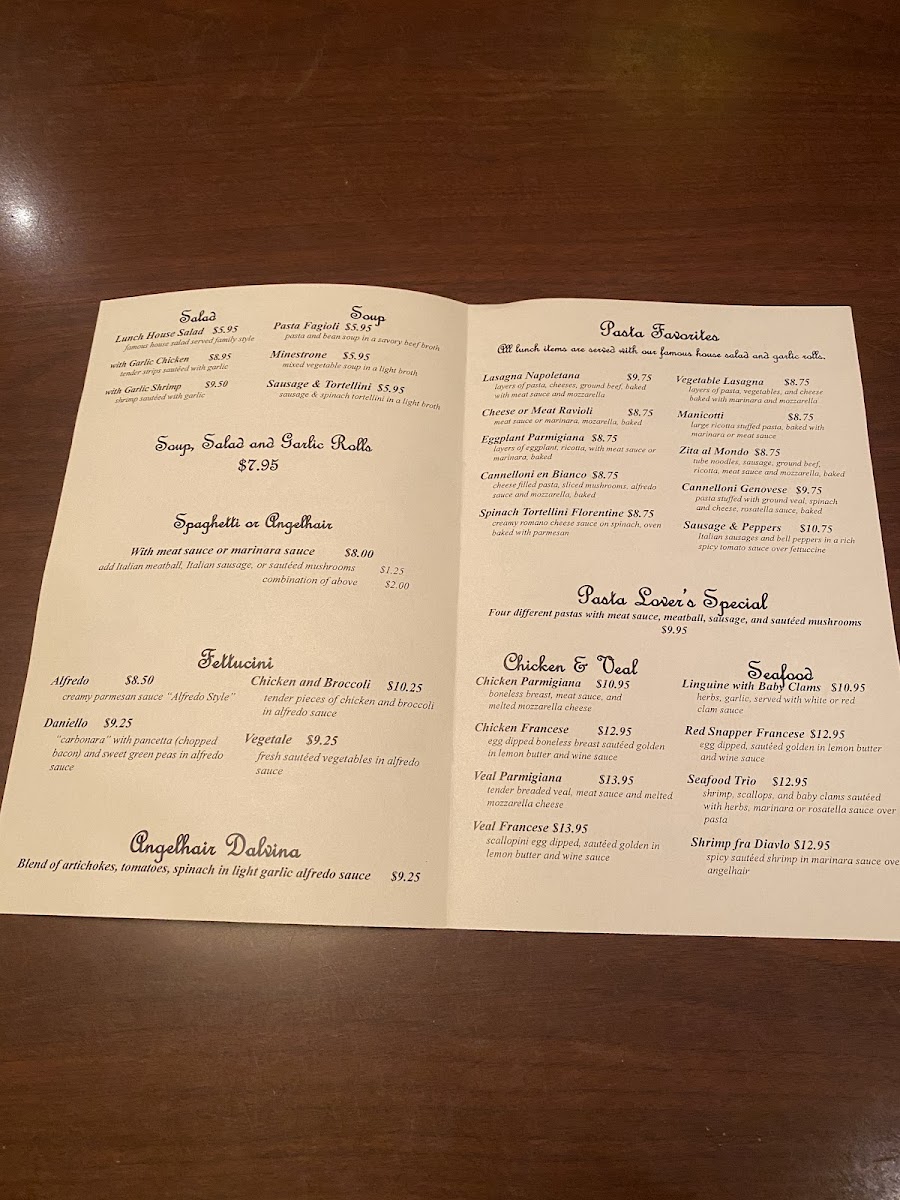 Salad
Lunch House Salad $5.95
famous house salad served family style
with Garlic Chicken $8.95
tender strips sautéed with garlic
with Garlic Shrimp $9.50
shrimp sautéed with garlic
Soup
Pasta Fagioli $5.95
pasta and bean soup in a savory beef broth
Minestrone $5.95
mixed vegetable soup in a light broth
Sausage & Tortellini $5.95
sausage & spinach tortellini in a light broth
Soup, Salad and Garlic Rolls
$7.95
Spaghetti or Angelhair
With meat sauce or marinara sauce $8.00
add Italian meatball, Italian sausage, or sautéed mushrooms $1.25
combination of above $2.00
Fettucini
Alfredo $8.50
creamy parmesan sauce "Alfredo Style"
Daniello $9.25
"carbonara" with pancetta (chopped
bacon) and sweet green peas in alfredo
sauce
Chicken and Broccoli $10.25
tender pieces of chicken and broccoli
in alfredo sauce
Vegetale $9.25
fresh sautéed vegetables in alfredo
sauce
Angelhair Dalvina
Blend of artichokes, tomatoes, spinach in light garlic alfredo sauce $9.25
Pasta Favorites
All lunch items are served with our famous house salad and garlic rolls.
Lasagna Napoletana $9.75
layers of pasta, cheeses, ground beef, baked
with meat sauce and mozzarella
Cheese or Meat Ravioli $8.75
meat sauce or marinara, mozarella, baked
Eggplant Parmigiana $8.75
layers of eggplant, ricotta, with meat sauce or
marinara, baked
Cannelloni en Bianco $8.75
cheese filled pasta, sliced mushrooms, alfredo
sauce and mozzarella, baked
Spinach Tortellini Florentine $8.75
creamy romano cheese sauce on spinach, oven
baked with parmesan
Vegetable Lasagna $8.75
layers of pasta, vegetables, and cheese
baked with marinara and mozzarella
Manicotti $8.75
large ricotta stuffed pasta, baked with
marinara or meat sauce
Zita al Mondo $8.75
tube noodles, sausage, ground beef,
ricotta, meat sauce and mozzarella, baked
Cannelloni Genovese $9.75
pasta stuffed with ground veal, spinach
and cheese, rosatella sauce, baked
Sausage & Peppers $10.75
Italian sausages and bell peppers in a rich
spicy tomato sauce over fettuccine
Pasta Lover's Special
Four different pastas with meat sauce, meatball, sausage, and sautéed mushrooms
$9.95
Chicken & Veal
Chicken Parmigiana $10.95
boneless breast, meat sauce, and
melted mozzarella cheese
Chicken Francese $12.95
egg dipped boneless breast sautéed golden
in lemon butter and wine sauce
Veal Parmigiana $13.95
tender breaded veal, meat sauce and melted
mozzarella cheese
Veal Francese $13.95
scallopini egg dipped, sautéed golden in
lemon butter and wine sauce
Seafood
Linguine with Baby Clams $10.95
herbs, garlic, served with white or red
clam sauce
Red Snapper Francese $12.95
egg dipped, sautéed golden in lemon butter
and wine sauce
Seafood Trio $12.95
shrimp, scallops, and baby clams sautéed
with herbs, marinara or rosatella sauce over
pasta
Shrimp fra Diavlo $12.95
spicy sautéed shrimp in marinara sauce ove
angelhair